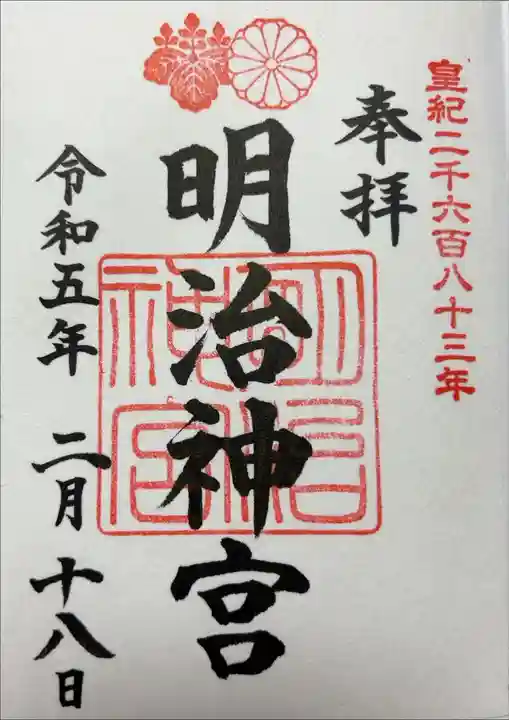 皇紀二千六百八十三年
奉拝
明治神宮
明治神宮
令和五年 二月 十八日